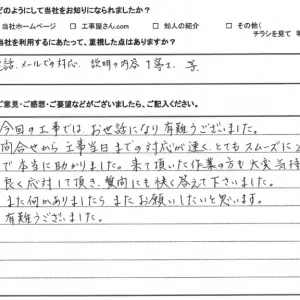 どのようにして当社をお知りになられましたか？
当社ホームページ □ 工事屋さん.com □ 知人の紹介 □ その他（
チラシを見て 等
当社を利用するにあたって、重視した点はありますか？
電話、メールでの対応、説明の内容、丁寧さ、等
ご意見・ご感想・ご要望などがございましたら、ご記入ください。
今回の工事では、お世話になり有難うございました。
問合せから工事当日までの対応が速く、とてもスムーズに
で本当に助かりました。来て頂いた作業の方も大変気持
良く応対して頂き、質問にも快く答えて下さいました。
また何かありましたらまたお願いしたいと思います。
有難うございました。